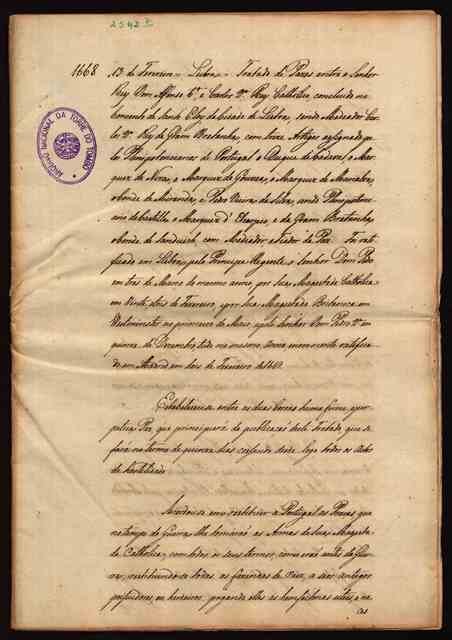 2542
1668
ARQUIVO NACIONAL DA TORRE DO TOMBO
13 de Fevereiro = Lisboa = Tratado de Pazes entre o Senhor
Rey Dom Affonso 6º e Carlos 2º Rey Catholico, concluido no
Convento de Santo Eloy da Cidade de Lisboa, sendo Mediador Car
los 2º Rey da Gram Bretanha, com treze Artigos assignado pe
los Plenipotenciarios de Portugal o Duque de Cadaval, o Mar
quez de Niza, o Marquez de Gouvea, o Marquez de Marialva,
o Conde de Miranda, e Pedro Vieira da Silva, sendo Plenipoten
ciario de Castella, o Marquez d'Eliche, e da Gram Bretanha,
o Conde de Sanduich, com Mediador e Fiador da Paz. Foi rati
ficado em Lisboa, pelo Principe Regente, o Senhor Dom Pedro
em tres de Março do mesmo anno, por Sua Magestade Catholica
em vinte tres de Fevereiro, e por Sua Magestade Britanica em
Westminster no primeiro de Maio, e pelo Senhor Dom Pedro 2º em
quinze de Dezembro tudo no mesmo anno, novamente ratifica
do em Madrid em dous de Fevereiro de 1669.
Estabeleceu-se entre as duas Coroas huma firme, e per
petua Paz, que principiará da publicação deste Tratado, que se
fará no termo de quinze dias cessando desde logo todos os Actos
de hostilidade
Accordou-se em restituir a Portugal as Praças que
no tempo da Guerra lhe tomarão as Armas de Sua Magesta
de Catholica, com todos os seus termos, como erão antes da Guer
ra, restituindo-se todas as fazendas de raiz, a seus antigos
possuidores, ou herdeiros, pagando elles as bemfeitorias uteis, e ne
ces